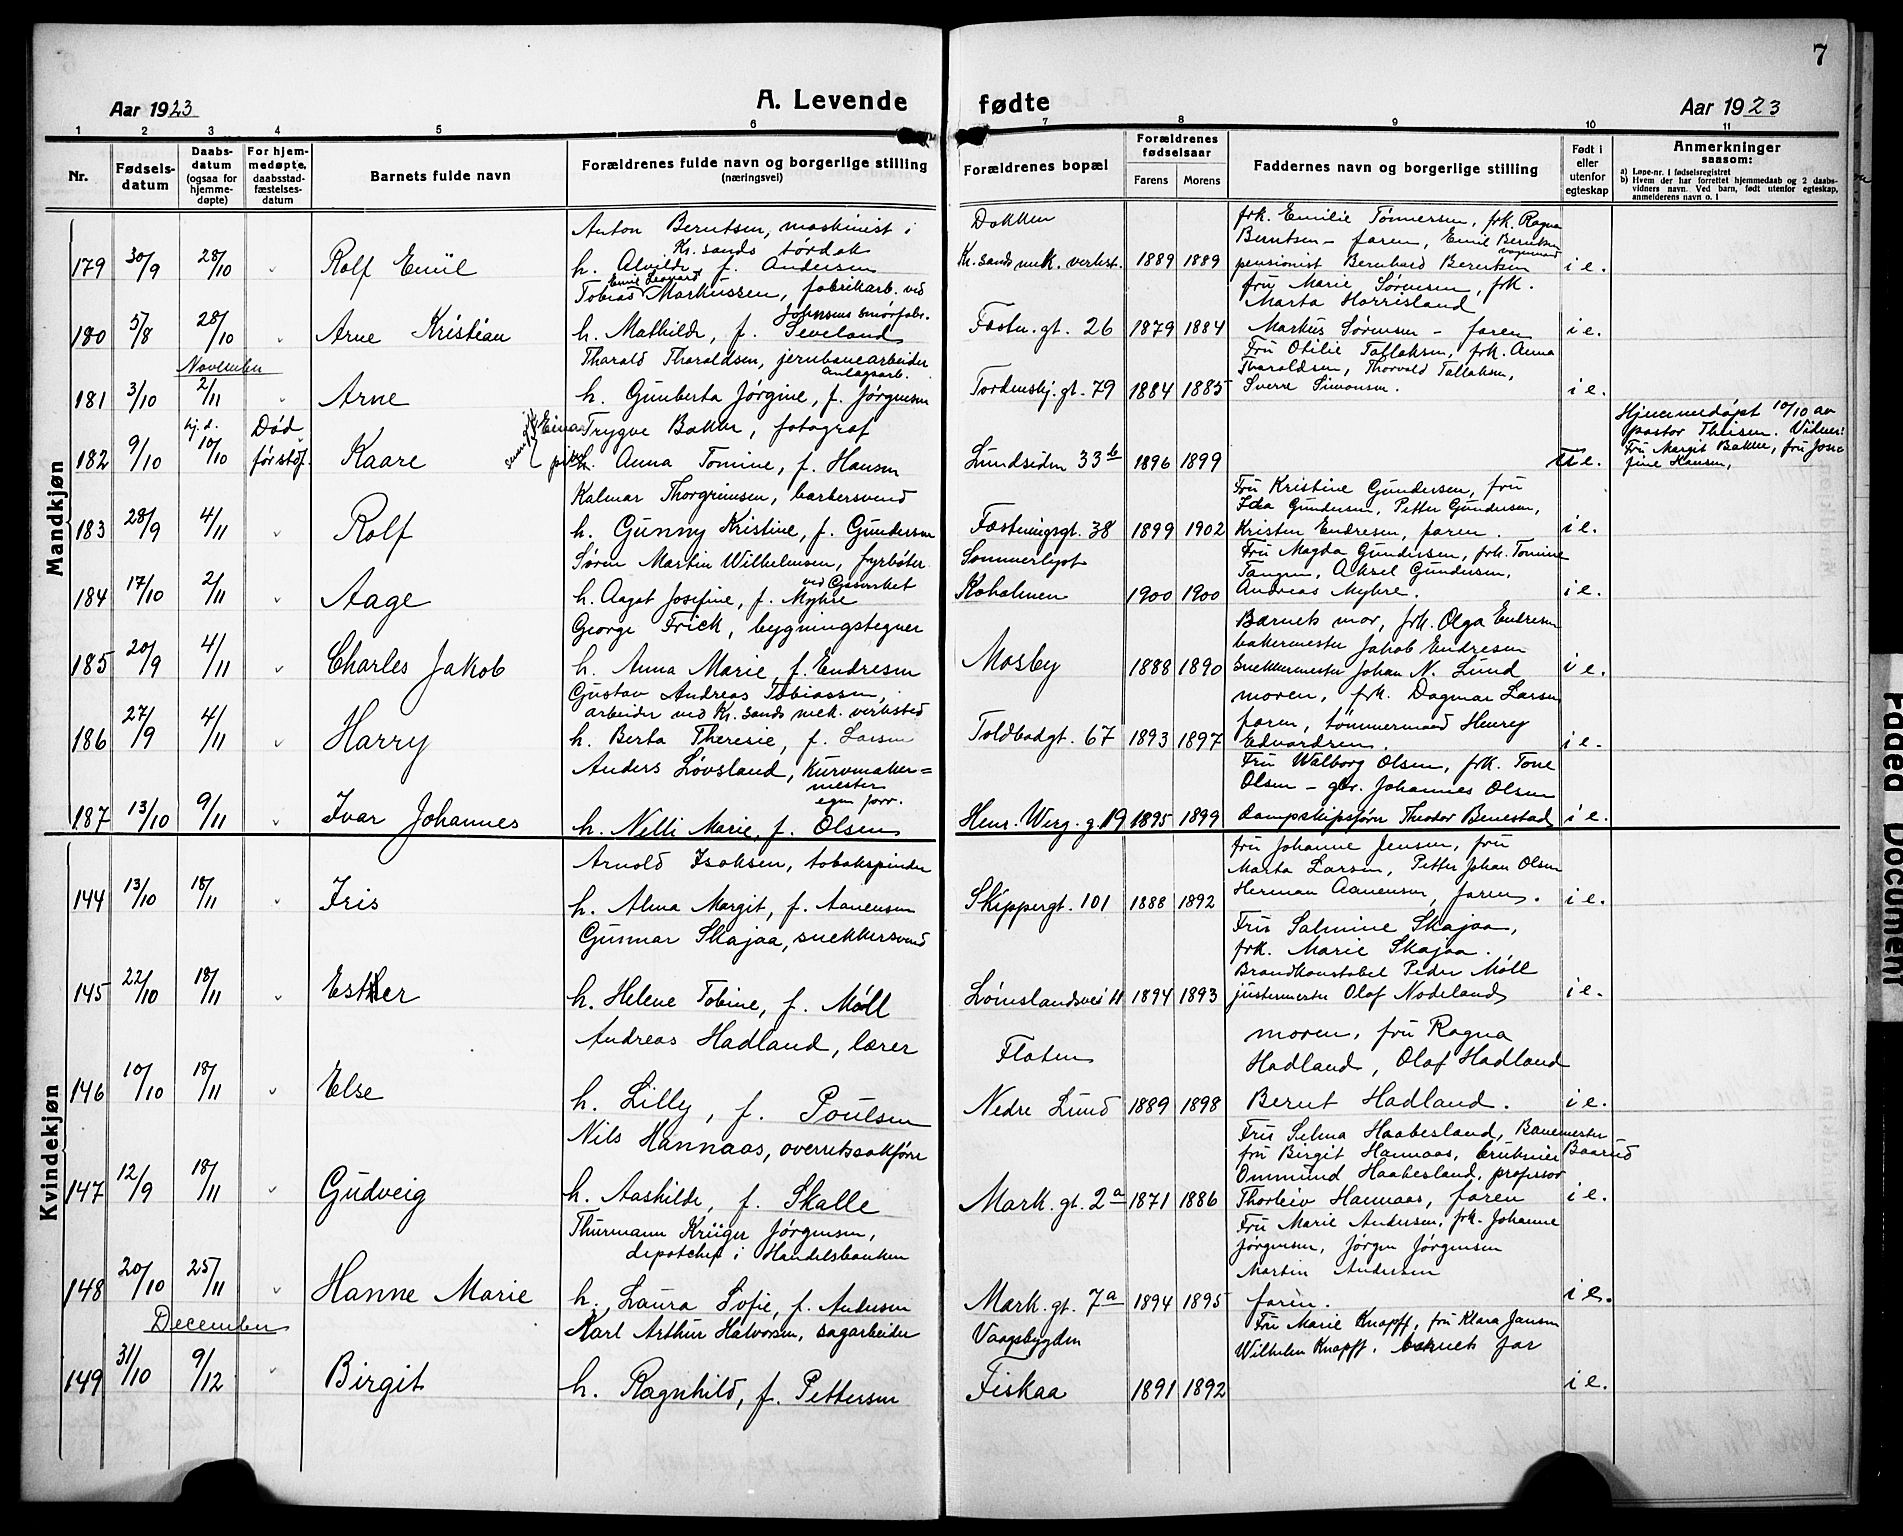 7
Aar 1923
A. Levende fødte
Aar 1923
1 2 3 4 5 6 7 8 9 10 11
Nr.
Fødsels-
datum
Daabs-
datum
(ogsaa for
hjemme-
døpte)
For hjem-
medøpte,
daabsstad-
fæstelses-
datum
Barnets fulde navn
Forældrenes fulde navn og borgerlige stilling
(næringsvei)
Forældrenes bopæl
Forældrenes
fødselsaar
Farens
Morens
Faddernes navn og borgerlige stilling
Født i
eller
utenfor
egteskap
Anmerkninger
saasom:
a) Løpe-nr. i fødselsregistret
b) Hvem der har forrettet hjemmedaab og 2 daabs-
vidners navn. Ved barn, født utenfor egteskap,
anmelderens navn o. l
Mandkjøn
179 30/9 28/10 Rolf Emil
Anton Berntsen, maskinist i
Kr.sands tørdok
h. Alvilde, f. Andersen
Dokken
Kr.sands mek. verkst. 1889 1889
frk. Emilie Tønnersen, frk. Ragna
Berntsen – faren, Emil Berntsen
pensionist Bernhard Berentsen
i e.
180 5/8 28/10 Arne Kristian
Tobias Markussen, fabrikarb. ved
Johnsens smørfabr.
h. Mathilde, f. Seveland
Fæstn. gt. 26 1879 1884
fru Marie Sørensen, frk.
Marta Harrisland
Markus Sørensen – faren
i e.
November
181 3/10 2/11 Arne
Tharald Tharaldsen, jernbanearbeider
anlagsarb.
h. Gunberta Jørgine, f. Jørgensen
Tordenskj. gt. 79 1884 1885
Fru Otilie Tallaksen, frk. Anna
Tharaldsen, Thorvald Tallaksen,
Sverre Simonsen.
i e.
182 9/10 hj.d. 10/10 Død før stadf. Kaare
Trygve Bakke, fotograf
h. Anna Tomine, f. Hansen
Lundsiden 33b 1896 1899
i e.
Hjemmedøpt 10/10 av
pastor Theisen. Vidner:
Fru Margit Bakke, fru Jose
fine Hansen,
183 28/9 4/11 Rolf
Kalmar Thorgrimsen, barbersvend
h. Gunny Kristine, f. Gundersen
Fæstningsgt. 38 1899 1902
Fru Kristine Gundersen, fru
Ida Gundersen, Petter Gundersen,
Kristen Endresen, faren.
i e.
184 17/10 2/11 Aage
Søren Martin Wilhelmsen, fyrbøter
ved Gasverket
h. Aagot Josefine, f. Myhre
Sommerlyst
Koholmen 1900 1900
Fru Magda Gundersen, frk. Tomine
Tangen, Aksel Gundersen,
Andreas Myhre.
i e.
185 20/9 4/11 Charles Jakob
George Frick, bygningstegner
h. Anna Marie, f. Endresen
Mosby 1888 1890
Barnets mor, frk. Olga Endresen
bakermester Jakob Endresen
snekkermester Johan N. Lund
i e.
186 27/9 4/11 Harry
Gustav Andreas Tobiassen,
arbeider ved Kr.sands mek. verksted
h. Berta Theresie, f. Larsen
Toldbodgt. 67 1893 1897
moren, frk. Dagmar Larsen
faren, tømmermand Henry
Edvardsen.
i e.
187 13/10 9/11 Ivar Johannes
Anders Løvsland, kurvmaker=
mester
egen forr.
h. Nelli Marie, f. Olsen
Henr. Werg. g. 19 1895 1899
Fru Walborg Olsen, frk. Tone
Olsen – gbr. Johannes Olsen
dampskipsfører Theodor Benestad
i e.
Kvindekjøn
144 13/10 18/11 Iris
Arnold Isaksen, tobakspinder
h. Alma Margit, f. Aanensen
Skippergt. 101 1888 1892
fru Johanne Jensen, fru
Marta Larsen, Petter Johan Olsen
Herman Aanensen, faren.
i e.
145 22/10 18/11 Esther
Gunnar Skajaa, snekkersvend
h. Helene Tobine, f. Møll
Lømslandsvei 11 1894 1893
Fru Salmine Skajaa,
frk. Marie Skajaa.
Brandkonstabel Peder Møll
justermester Olaf Nodeland
i e.
146 10/10 18/11 Else
Andreas Hadland, lærer
h. Lilly, f. Poulsen
Flaten
Nedre Lund 1889 1898
moren, fru Ragna
Hadland, Olaf Hadland
Bernt Hadland.
i e.
147 12/9 18/11 Gudveig
Nils Hannaas, overretssakfører
h. Aashilde, f. Skalle
Mark. gt. 2a 1871 1886
Fru Selma Haabesland, Banemester
fru Birgit Hannaas, Baarud
Ommund Haabesland, professor
Thorleiv Hannaas, faren
i e.
148 20/10 25/11 Hanne Marie
Thurmann Krüger Jørgensen,
depotchef i Handelsbanken
h. Laura Sofie, f. Andersen
Mark. gt. 7a 1894 1895
Fru Marie Andersen, frk. Johanne
Jørgensen, Jørgen Jørgensen
Martin Andersen
faren.
i e.
December
149 31/10 9/12 Birgit
Karl Arthur Halvorsen, sagarbeider
h. Ragnhild, f. Pettersen
Vaagsbygden
Fiskaa 1891 1892
Fru Marie Knapff, fru Klara Jansen
Wilhelm Knapff. barnets far
i e.
Faded Document